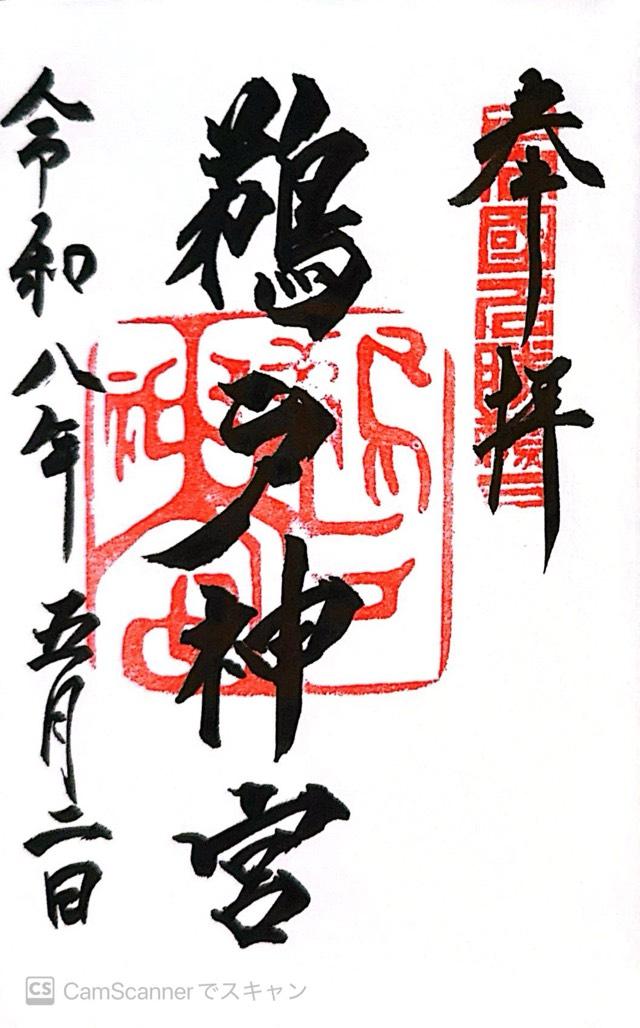 奉拝
鵜戸神宮
令和八年 五月二日
CS CamScannerでスキャン